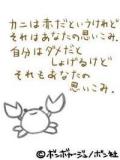 カニは赤だというけれど
それはあなたの思いこみ.
自分はダメだと
しょげるけど
それもあなたの
思いこみ.
©ボンボヤージュ/ボン社